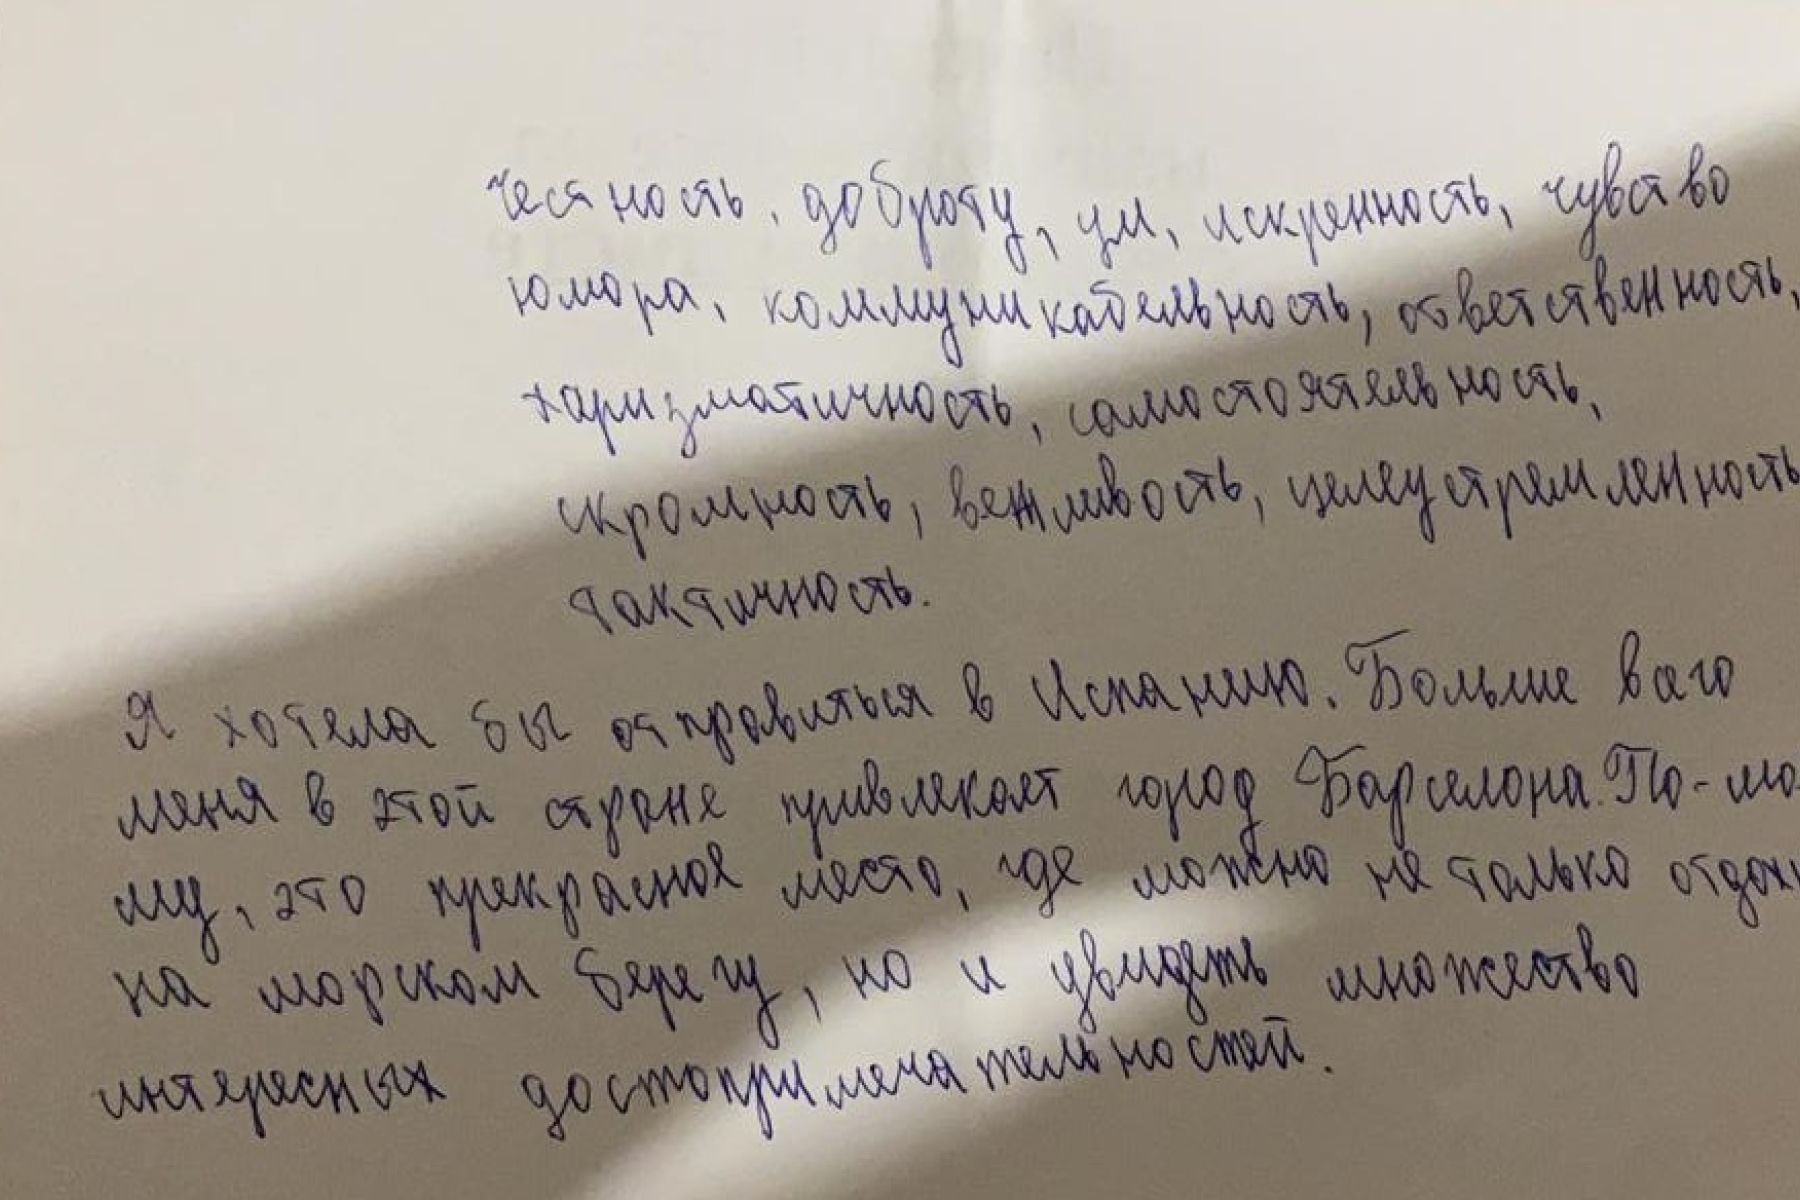 честность, доброту, ум, искренность, чувство
юмора, коммуникабельность, ответственность,
харизматичность, самостоятельность,
скромность, вежливость, целеустремленность
тактичность.
Я хотела бы отправиться в Испанию. Больше всего
меня в этой стране привлекает город Барселона. По-мо-
му, это прекрасное место, где можно не только отдох
на морском берегу, но и увидеть множество
интересных достопримечательностей.